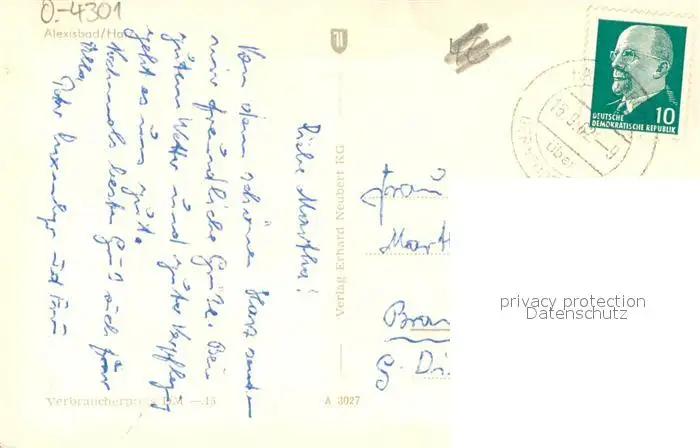 O.-4301
Alexisbad/Ha
Liebe Martha!
Von dem schönen Harz senden
wir freundliche Grüße. Bei
gutem Wetter und guter Verpflegung
geht es uns gut.
Nochmals besten Gruß auch für
Alle
und Frau
Verlag Erhard Neubert KG
Verbraucherpreis DM —.15
A 3027
10
DEUTSCHE
DEMOKRATISCHE REPUBLIK
über
Frau
Mart
Bran
privacy protection
Datenschutz